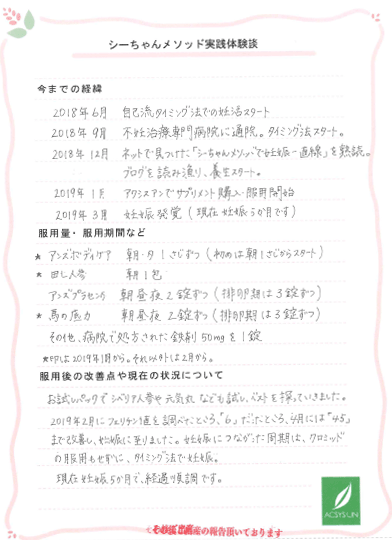 シーちゃんメソッド実践体験談
今までの経緯
2018年6月 自己流タイミング法での妊活スタート
2018年9月 不妊治療専門病院に通院。タイミング法スタート。
2018年12月 ネットで見つけた「シーちゃんメソッドで妊娠一直線」を熟読。
ブログを読み漁り、養生スタート。
2019年1月 アクシスアンでサプリメント購入・服用開始
2019年3月 妊娠発覚(現在妊娠5か月です)
服用量・服用期間など
★ アンズボディケア 朝・夕1さじずつ(初めは朝1さじからスタート)
★ 田七人参 朝1包
アンズプラセンタ 朝昼夜2錠ずつ(排卵期は3錠ずつ)
★ 馬の底力 朝昼夜2錠ずつ(排卵期は3錠ずつ)
その他、病院で処方された鉄剤50mgを1錠
★印は2019年1月から。それ以外は2月から。
服用後の改善点や現在の状況について
お試しパックでシベリア人参や元気丸なども試し、ベストを探っていきました。
2019年2月にフェリチン値を調べたところ、「6」だったところ、4月には「45」
まで改善し、妊娠に至りました。妊娠につながった周期は、クロミッド
の服用もせずに、タイミング法で妊娠。
現在妊娠5か月で、経過順調です。
ACSYS UN
産の報告頂いております